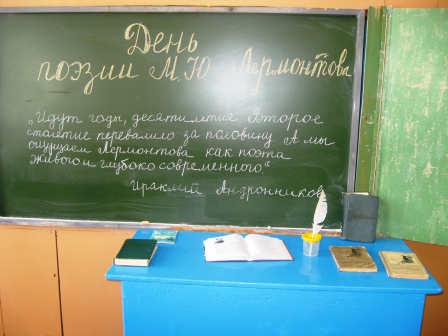 День
поэзии М.Ю. Лермонтова
„Идут годы, десятилетия. Второе
столетие перевалило за половину. А мы
ощущаем Лермонтова как поэта
живого и глубоко современного."
Ираклий Андронников